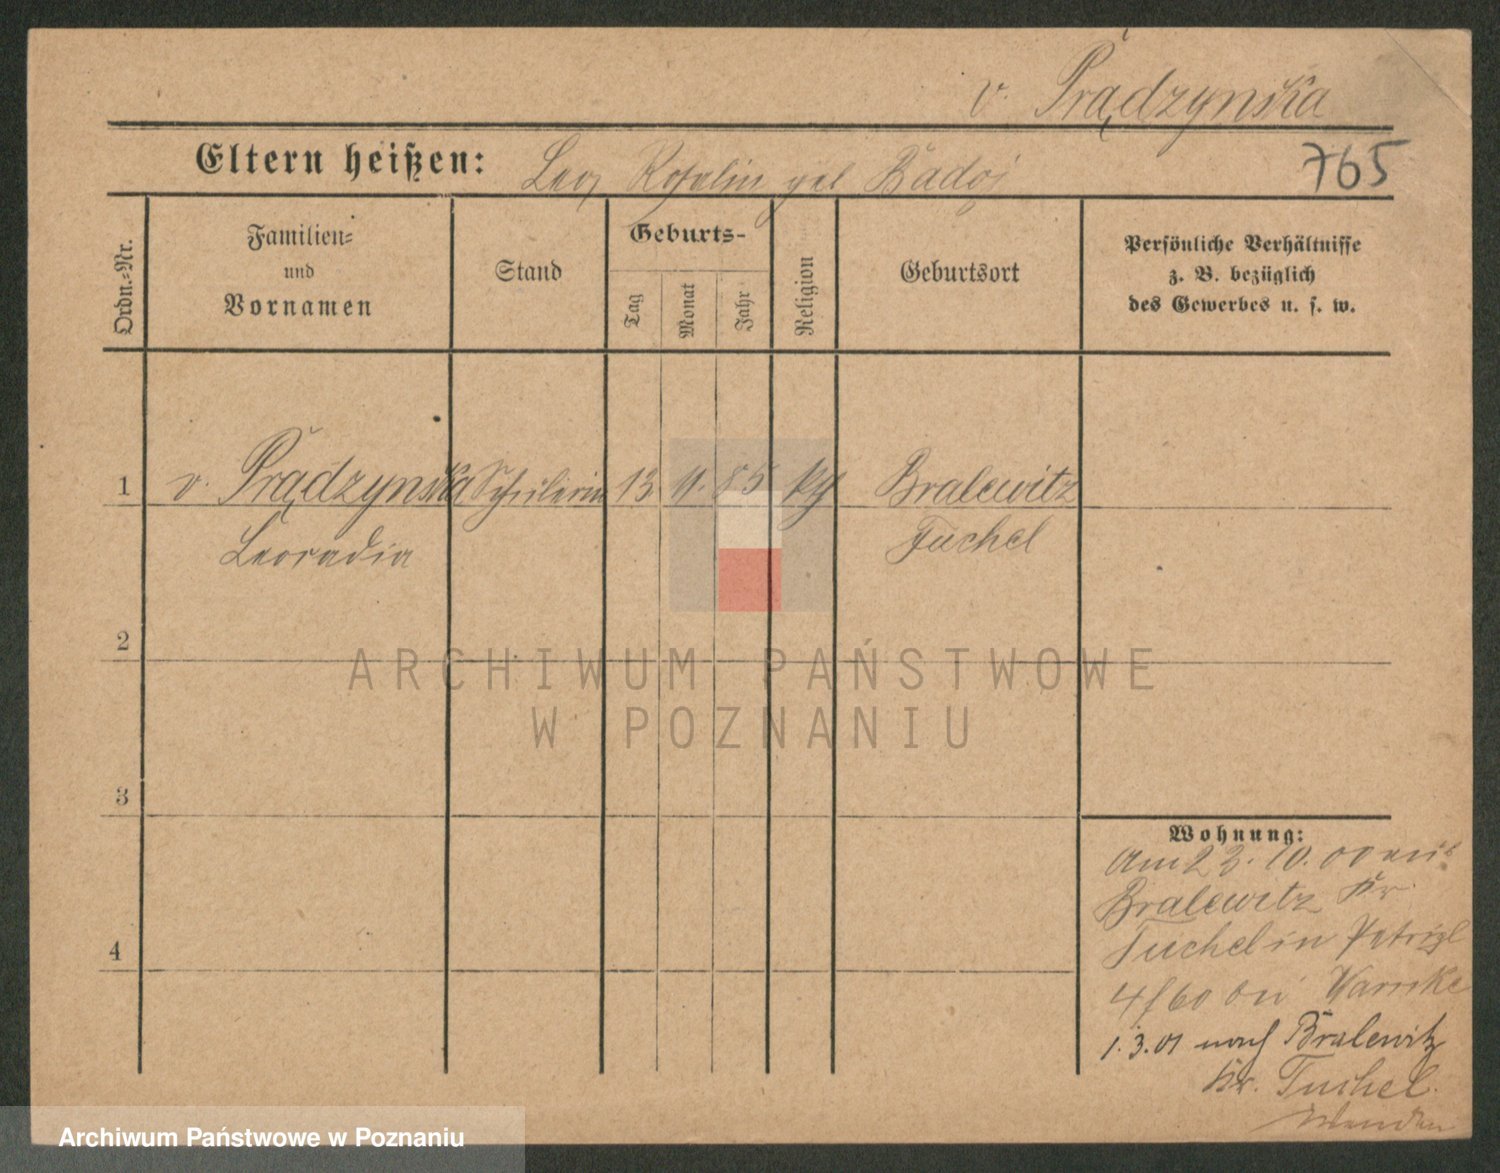 v. Prądzynska
Eltern heißen: Leo, Rosalin geb Badoj
765
Ordn.-Nr.
Familien-
und
Vornamen
Stand
Geburts-
Tag
Monat
Jahr
Religion
Geburtsort
Persönliche Verhältnisse
z. B. bezüglich
des Gewerbes u. s. w.
1 v. Prądzynska Schülerin 13. 11. 85 kth Bralewitz
Leocadia Tuchel
2
3
4
Wohnung:
Am 23. 10. 00 aus
Bralewitz Kr.
Tuchel in Petripl
4/60 bei Warnke
1.3.01 nach Bralewitz
Kr. Tuchel.
ARCHIWUM PAŃSTWOWE
W POZNANIU
Archiwum Państwowe w Poznaniu